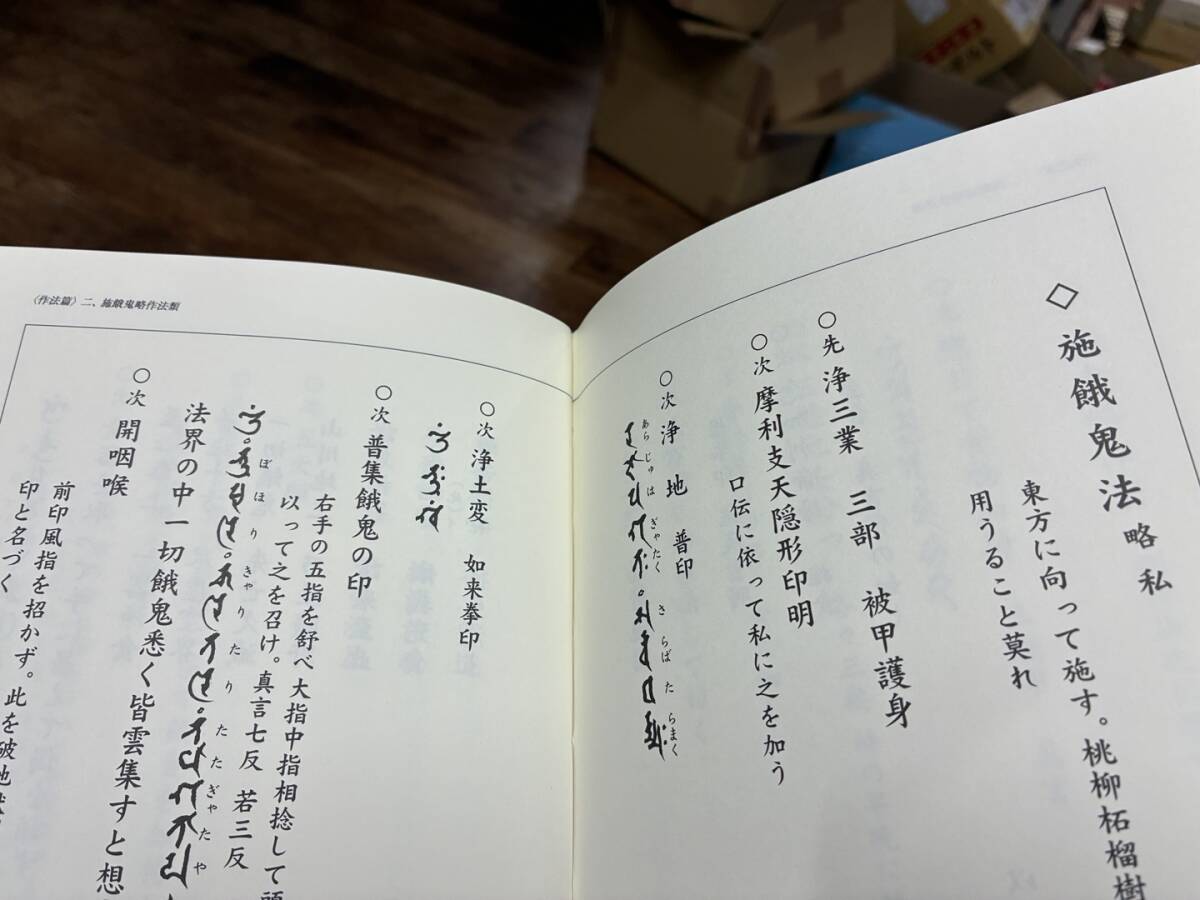 ◇ 施餓鬼法 略 私
東方に向って施す。桃柳柘榴樹
用うること莫れ
○先 浄三業 三部 被甲護身
○次 摩利支天隠形印明
口伝に依って私に之を加う
○次 浄地 普印
あらじゅは ぎゃたく さらばた らまく
〈作法篇〉二、施餓鬼略作法類
○次 浄土変 如来拳印
○次 普集餓鬼の印
右手の五指を舒べ大指中指相捻して頭
以って之を召け。真言七反 若三反
ぼほり ぎゃりたり たたぎゃたや
法界の中一切餓鬼悉く皆雲集すと想
○次 開咽喉
前印風指を招かず。此を破地
印と名づく